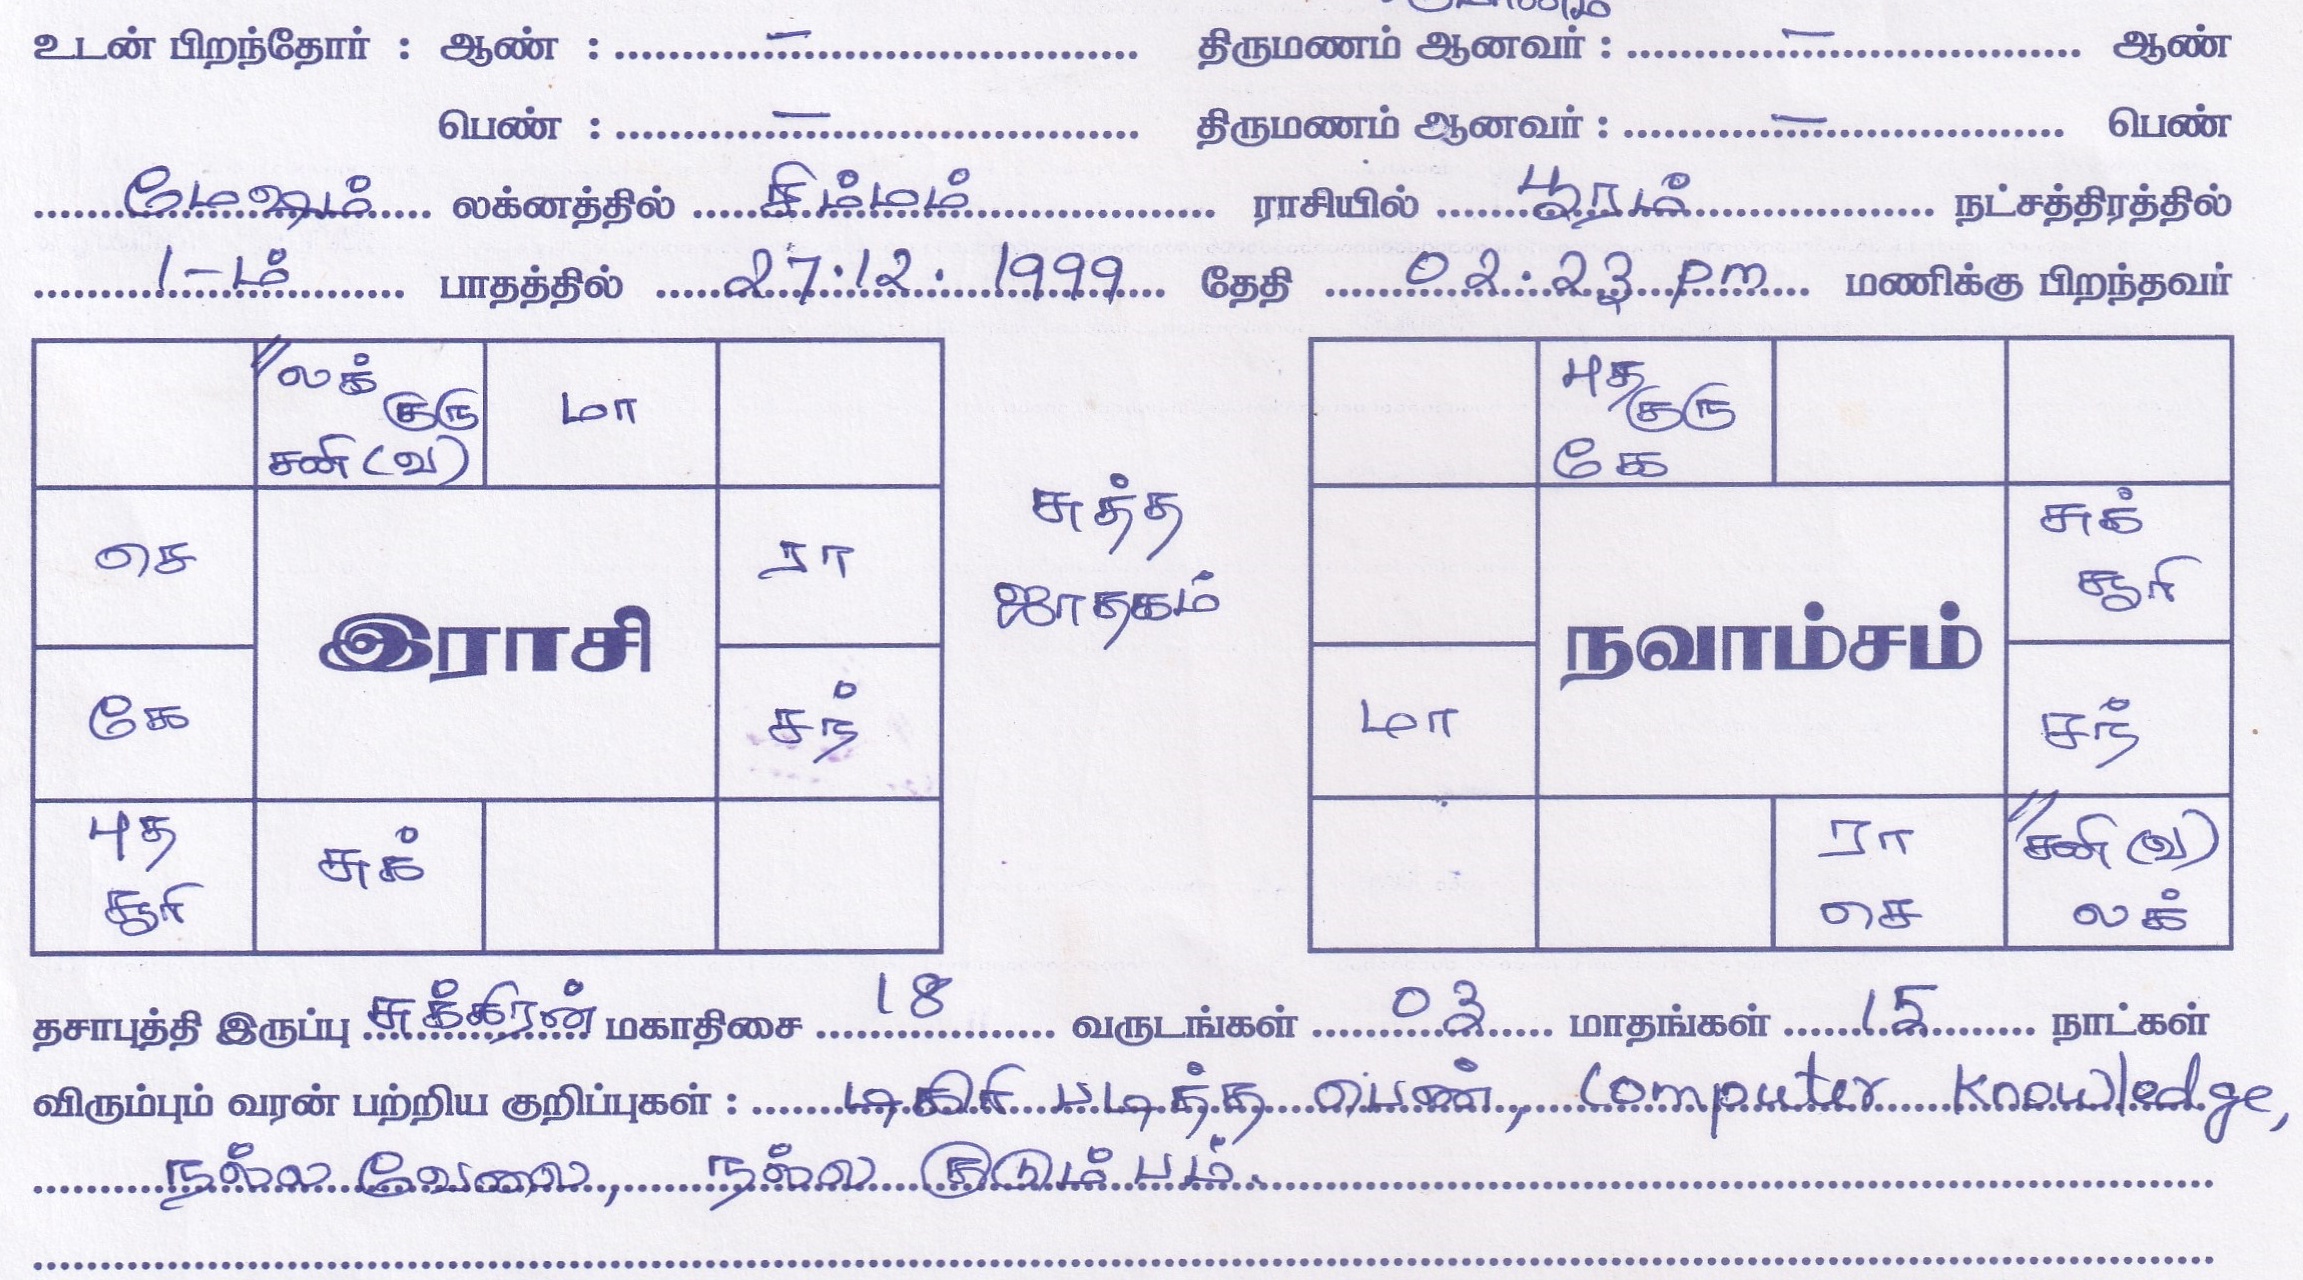 உடன் பிறந்தோர் : ஆண் : ..........–.......... திருமணம் ஆனவர் : ..........–.......... ஆண்
பெண் : ..........–.......... திருமணம் ஆனவர் : ..........–.......... பெண்
மேஷம் லக்னத்தில் சிம்மம் ராசியில் பூரம் நட்சத்திரத்தில்
1-ம் பாதத்தில் 27.12.1999 தேதி 02.23 pm மணிக்கு பிறந்தவர்
லக்
குரு
சனி (வ)
மா
செ
ரா
இராசி
கே
சந்
புத
சூரி
சுக்
சுத்த
ஜாதகம்
புத
குரு
கே
சுக்
சூரி
நவாம்சம்
மா
சந்
ரா
செ
சனி (வ)
லக்
தசாபுத்தி இருப்பு சுக்கிரன் மகாதிசை 18 வருடங்கள் 03 மாதங்கள் 15 நாட்கள்
விரும்பும் வரன் பற்றிய குறிப்புகள் : டிகிரி படித்த பெண், Computer Knowledge,
நல்ல வேலை, நல்ல குடும்பம்.